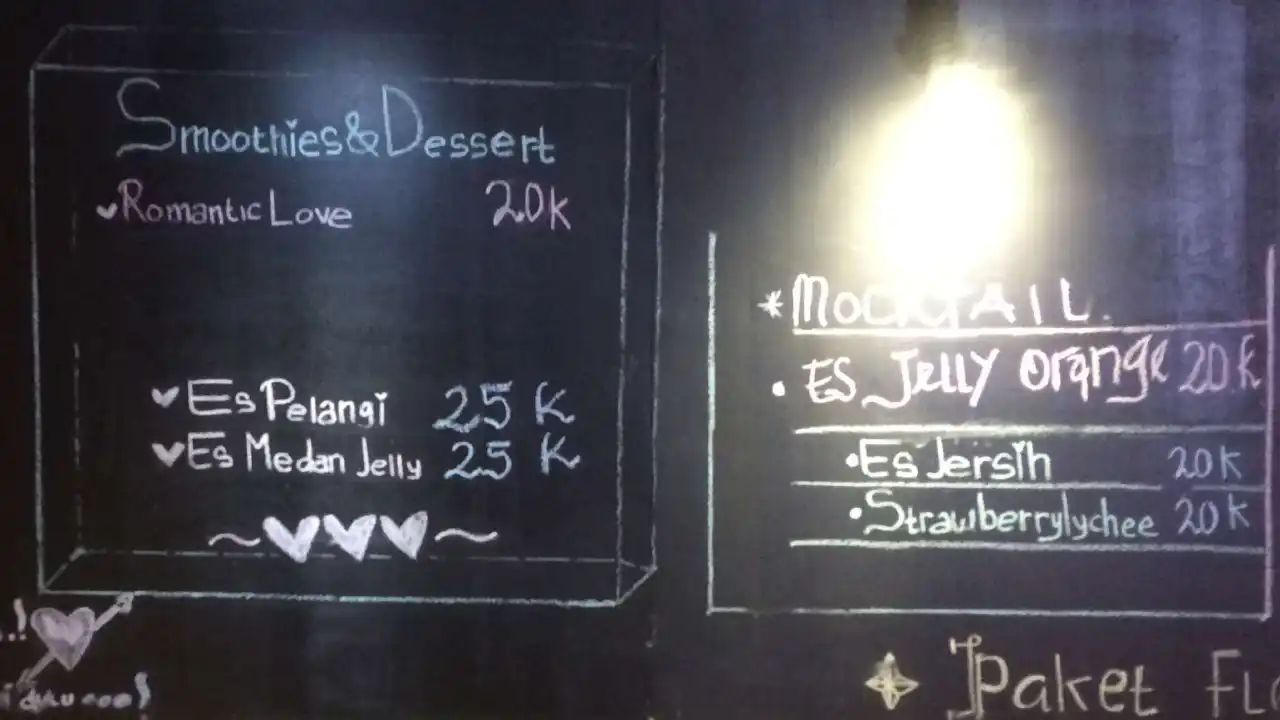 Smoothies & Dessert
Romantic Love 20k
Es Pelangi 25 K
Es Medan Jelly 25 K
* MOCKTAIL.
• ES Jelly Orange 20k
• Es Jersih 20K
• Strawberrylychee 20K
Paket